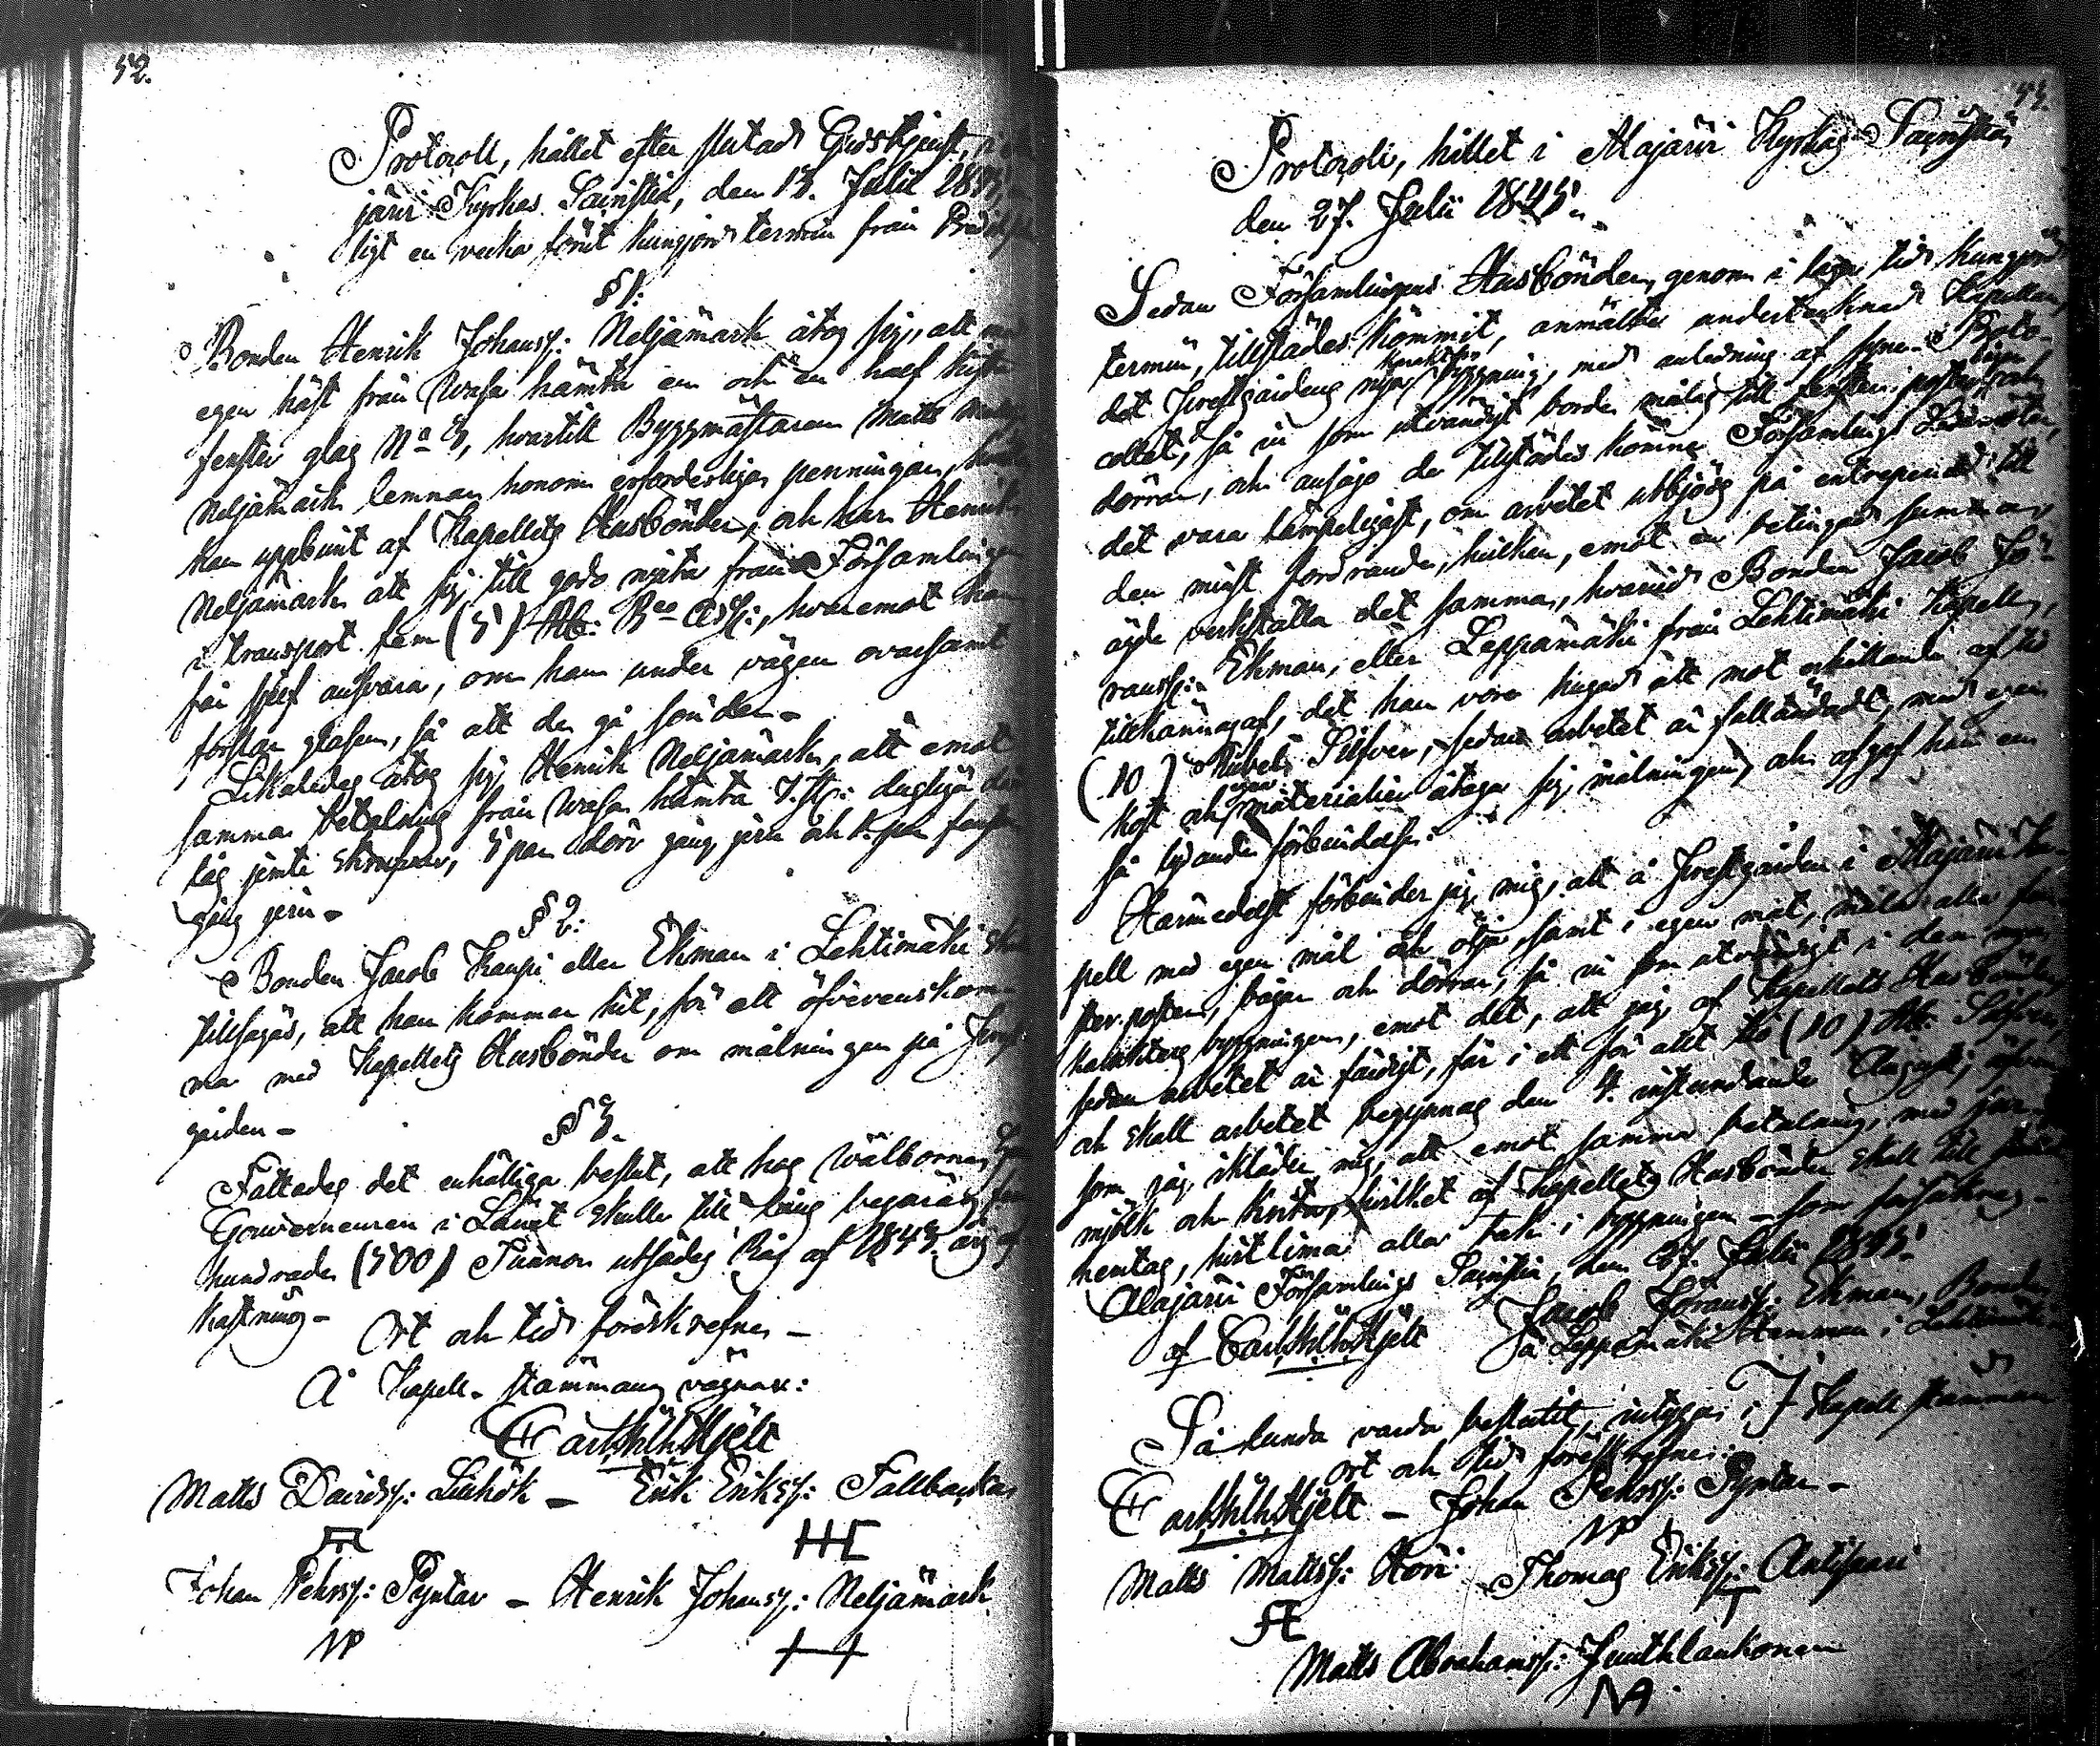 52.
Protocoll, hållet efter slutad Gudstjenst, i
järvi Kyrkas Sacristia, den 13. Julii 1845,
ligt en vecka förut kungjord termin från
§ 1:
Bonden Henrik Johanss: Neljämark åtog sig, att med
egen häst från Wasa hämta en och en half kista
fenster glas No 3, hvartill Byggmästaren Matts
Neljämark lemnar honom erforderliga penningar,
han uppburit af Kapellets Husbönder, och har Henrik
Neljämark att sig till godo njuta från Församlingen
i transport fem (5) Rb: Bco Ass:, hvaremot han
får sjelf ansvara, om han under vägen ovarsamt
forslar glasen, så att de gå sönder.-
Likaledes åtog sig Henrik Neljämark, att emot
samma betalning från Wasa hämta 7. st: dugliga dörr
lås jemte skrufvar, 5 par dörr gång jern och 1. par
gång jern.-
§ 2:
Bonden Jacob Kaupi eller Ekman i Lehtimäki
tillsägas, att han kommer hit, för att öfverenskom-
ma med Kapellets Husbönder om målningen på
gården.-
§ 3.
Fattades det enhälliga beslut, att hos Wälborne Herr
Gouverneuren i Länet skulle till låns begäras fem
hundrade (500) Tunnor utsädes Råg af 1845. års af-
kastning.-
Ort och tid förskrefne.-
Å Kapell-stämmans vägnar:
Carl Wilh. Hjelt
Matts Davidss: Liuhók - Erik Erikss: Fallbacka
Johan Pehrss: Pyntar - Henrik Johanss: Neljämark
NP
53.
Protocoll, hållet i Alajärvi Kyrkas Sacristia,
den 27. Julii 1845.
Sedan Församlingens Husbönder, genom i laga tid kungjord
termin, tillstädes kommit, anmälte undertecknad Kapellan,
det Prestgårdens nya byggning, med anledning af syne-Proto-
collet, så in som utvändigt borde målas till fenster poster, bågar och
dörrar, och ansågo de tillstädes komne Församlings Ledamöter,
det vara lämpeligast, om arbetet utbjöds på entreprenad till
den minst fordrande, hvilken, emot en betingad summa,
ägde verkställa det samma, hvarvid Bonden Jacob Jö-
ranss: Ekman, eller Leppämäki från Lehtimäki Kapell,
tillkännagaf, det han vore hugad att mot erhållande af tio
(10) Rubel Silfver, sedan arbetet är fulländadt, med egen
kost och egna materialier åtaga sig målningen, och afgaf han en
så lydande förbindelse:
Härmedelst förbinder jag mig, att å Prestgården i Alajärvi Ka-
pell med egen mål och olja, samt i egen mat, måla alla fen-
ster poster, bågar och dörrar, så in som utvändigt i den nya
karakters byggningen, emot det, att jag af Kapellets Husbönder,
sedan arbetet är färdigt, får i ett för allt tio (10) Rb: Silfver,
och skall arbetet begynnas den 4. instundande Augusti; äfven
som jag ikläder mig, att emot samma betalning, med
mjölk och krita, hvilket af Kapellets Husbönder skall till
hemtas, hvitlima alla tak i byggningen - som försäkras.-
Alajärvi Församlings Sacristia, den 27. Julii 1845.
Jacob Jöranss: Ekman, Bonde
af Carl Wilh. Hjelt på Leppämäki Hemman i Lehtimäki
Så lunda varda beslutit, intygar; I Kapell stämman
ort och tid förskrefne:
Carl Wilh. Hjelt - Johan Pehrss: Pyntar.-
NP
Matts Mattss: Hori Thomas Erikss: Antipari
T
Matts Abrahamss: Junthlankonen
NA